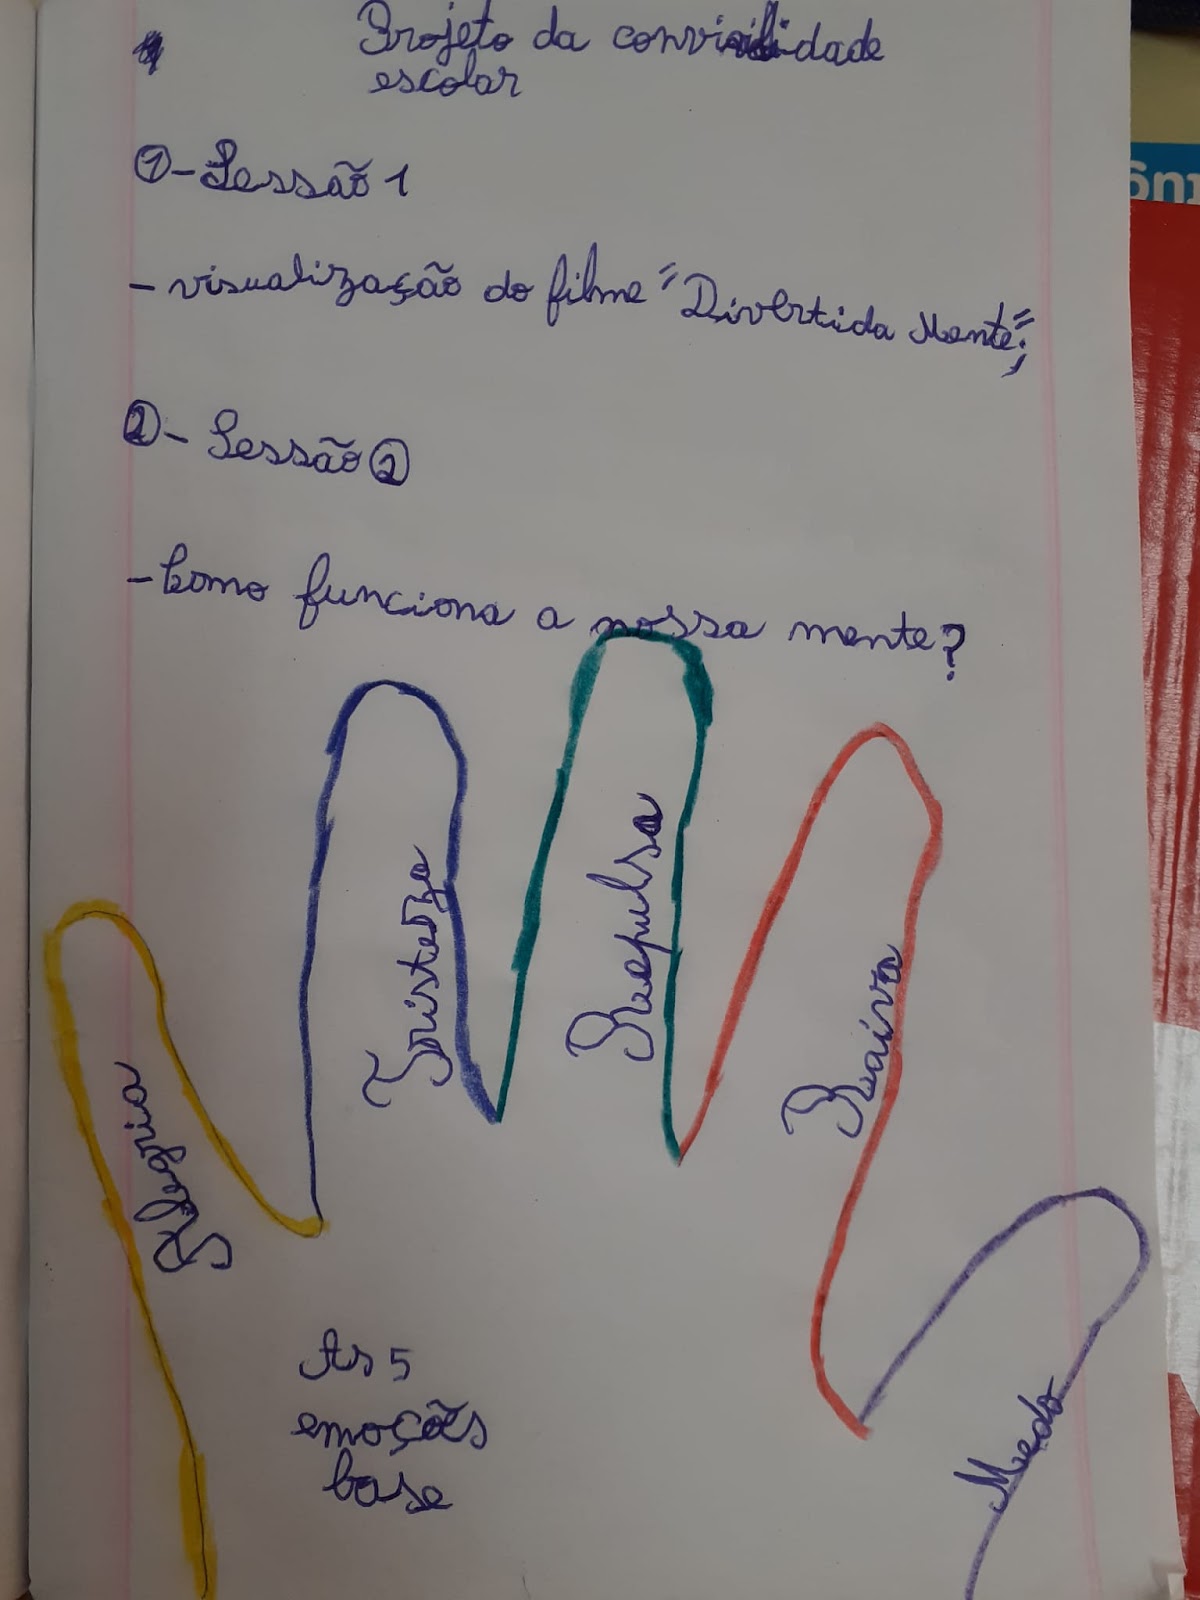 Projeto da convivilidade
escolar
①-Sessão 1
- visualização do filme "Divertida Mente";
②- Sessão ②
- Como funciona a nossa mente?
Alegria
Tristeza
Repulsa
Raiva
Medo
As 5
emoções
base